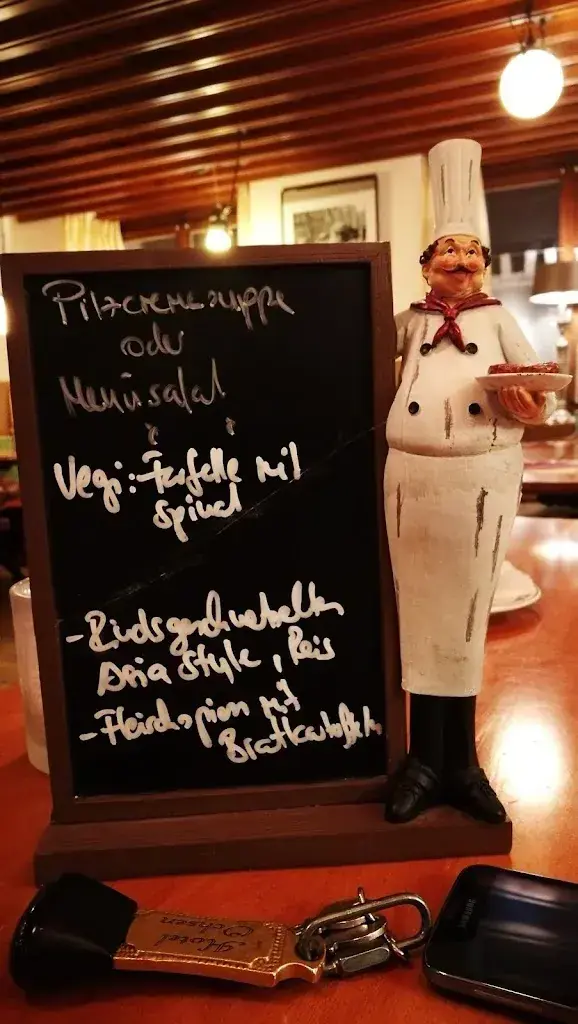 Pilzcremesuppe
oder
Menüsalat
Vegi: Farfalle mit
Spinat
- Rindsgeschnetzeltes
Asia Style, Reis
- Fleischspiess mit
Bratkartoffeln
Hotel
Ochsen
SAMSUNG